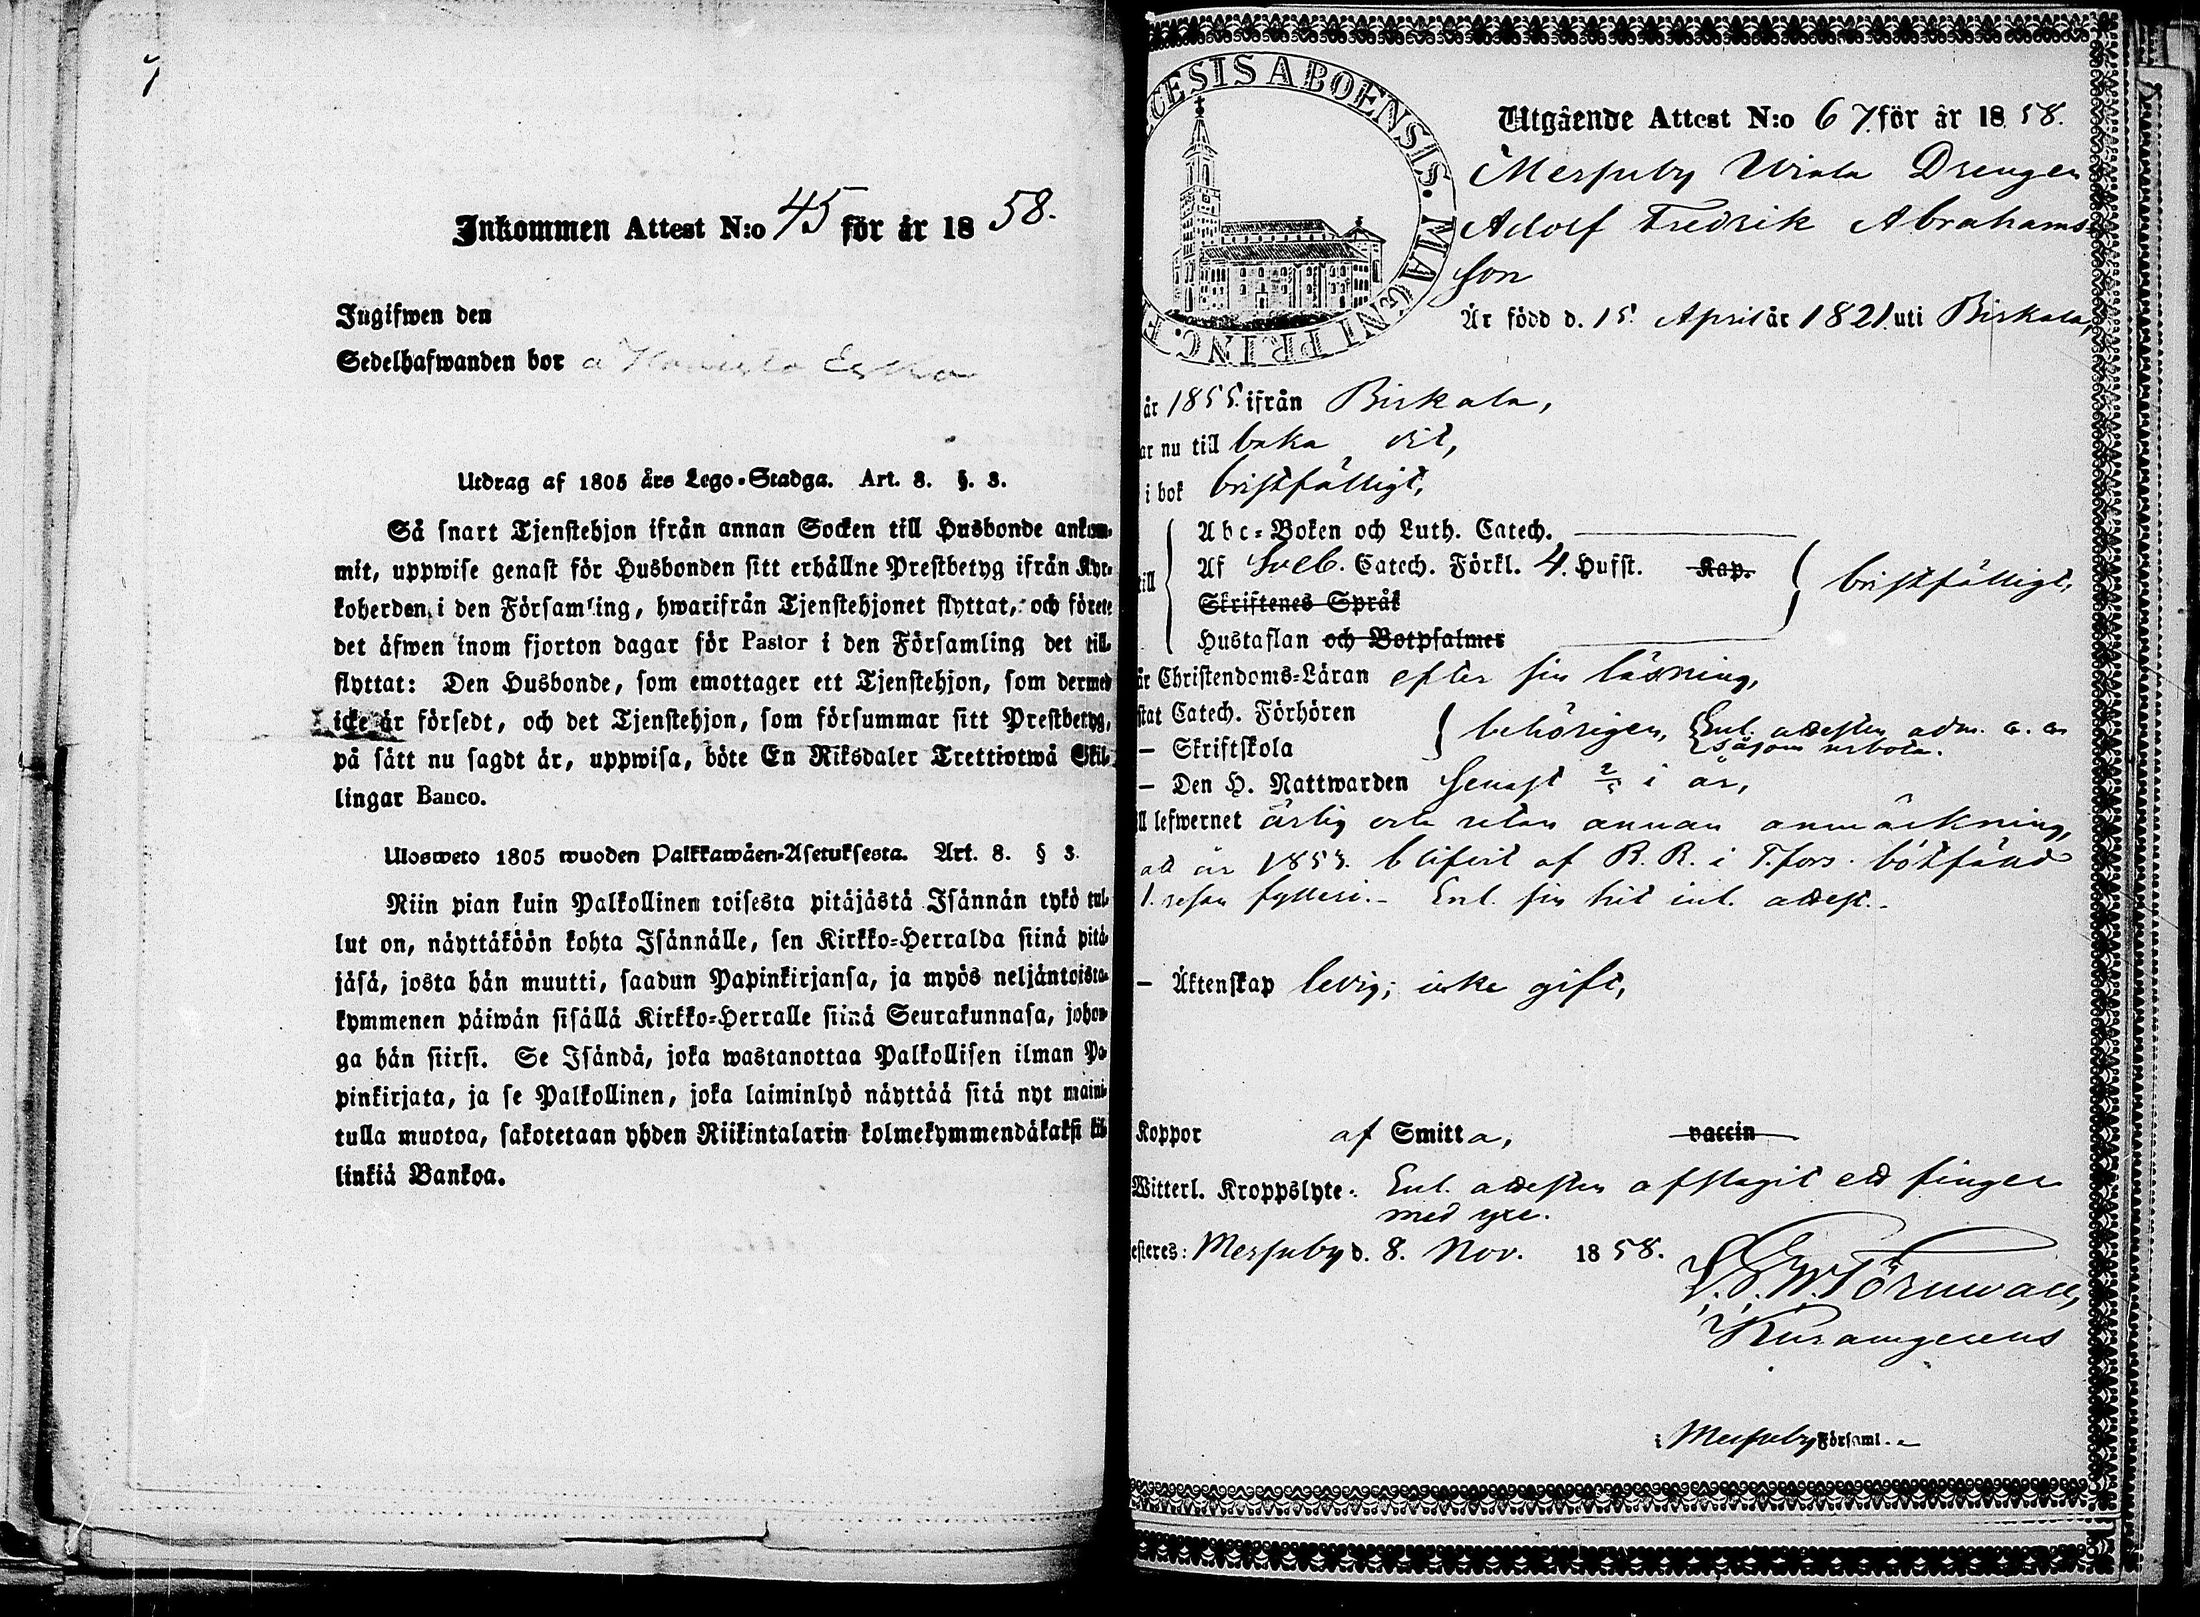 Inkommen Attest N:o 45 för år 18 58.
Ingifwen den
Sedelhafwanden bor a
Utdrag af 1805 års Lego-Stadga. Art. 8. §. 3.
Så snart Tjenstehjon ifrån annan Socken till Husbonde ankom-
mit, uppwise genast för Husbonden sitt erhållne Prestbetyg ifrån Kyr-
koherden i den Församling, hwarifrån Tjenstehjonet flyttat, och förete
det äfwen inom fjorton dagar för Pastor i den Församling det till-
flyttat: Den Husbonde, som emottager ett Tjenstehjon, som dermed
icke är försedt, och det Tjenstehjon, som försummar sitt Prestbetyg,
på sätt nu sagdt är, uppwisa, böte En Riksdaler Trettiotwå Skil-
lingar Banco.
Ulosweto 1805 wuoden Palkkawäen-Asetuksesta. Art. 8. § 3.
Niin pian kuin Palkollinen toisesta pitäjästä Isännän tykö tul-
lut on, näyttäköön kohta Isännälle, sen Kirkko-Herralda siinä pitä-
jäsä, josta hän muutti, saadun Papinkirjansa, ja myös neljäntoista-
kymmenen päiwän sisällä Kirkko-Herralle siinä Seurakunnasa, johon-
ga hän siirsi. Se Isändä, joka wastanottaa Palkollisen ilman Pa-
pinkirjata, ja se Palkollinen, joka laiminlyö näyttää sitä nyt maini-
tulla muotoa, sakotetaan yhden Riikintalarin kolmekymmendäkaksi kil-
linkiä Bankoa.
CESIS ABOENSIS. MAGNI PRINC. F
Utgående Attest N:o 67. för år 18 58.
Messuby Wiala Drengen
Adolf Fredrik Abrahams-
son
Är född d. 15 April år 1821. uti Birkala,
år 1855. ifrån Birkala,
ar nu till baka dit,
i bok bristfälligt,
Abc-Boken och Luth. Catech.
till Af Sveb. Catech. Förkl. 4. Hufst. Kap. bristfälligt,
Skriftenes Språk
Hustaflan och Botpsalmer
är Christendoms-Läran efter sin läsning,
stat Catech. Förhören behörigen, Enl. attesten adm. a. a.
— Skriftskola såsom
— Den H. Nattwarden senast 2/5 i år,
ll lefwernet ärlig och utan annan anmärkning,
att år 1853. blifvit af R. R. i T.fors. bötfälld
1. resan fylleri.- Enl. sin hit inl. attest.-
— Äktenskap ledig; icke gift,
Koppor af Smitta, vaccin
Witterl. Kroppslyte: Enl. attesten afslagit ett finger
med yxe.
esteres: Messuby d. 8. Nov. 18 58.
Törnwall,
i Messuby Församl.